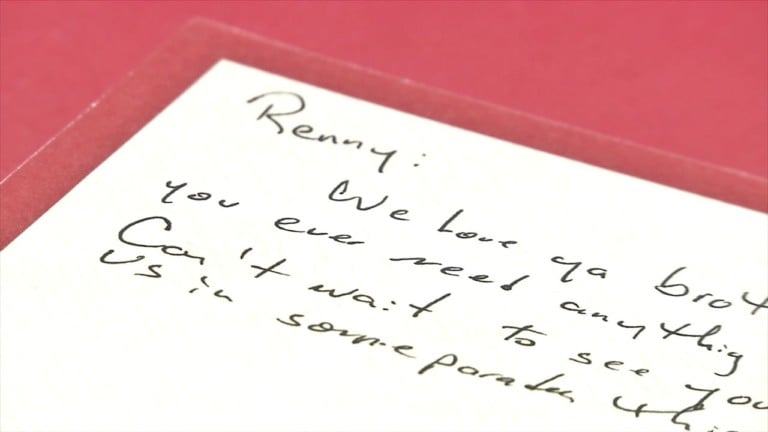 Renny:
We love ya brot
you ever need anything
Can't wait to see you
us in some parades this